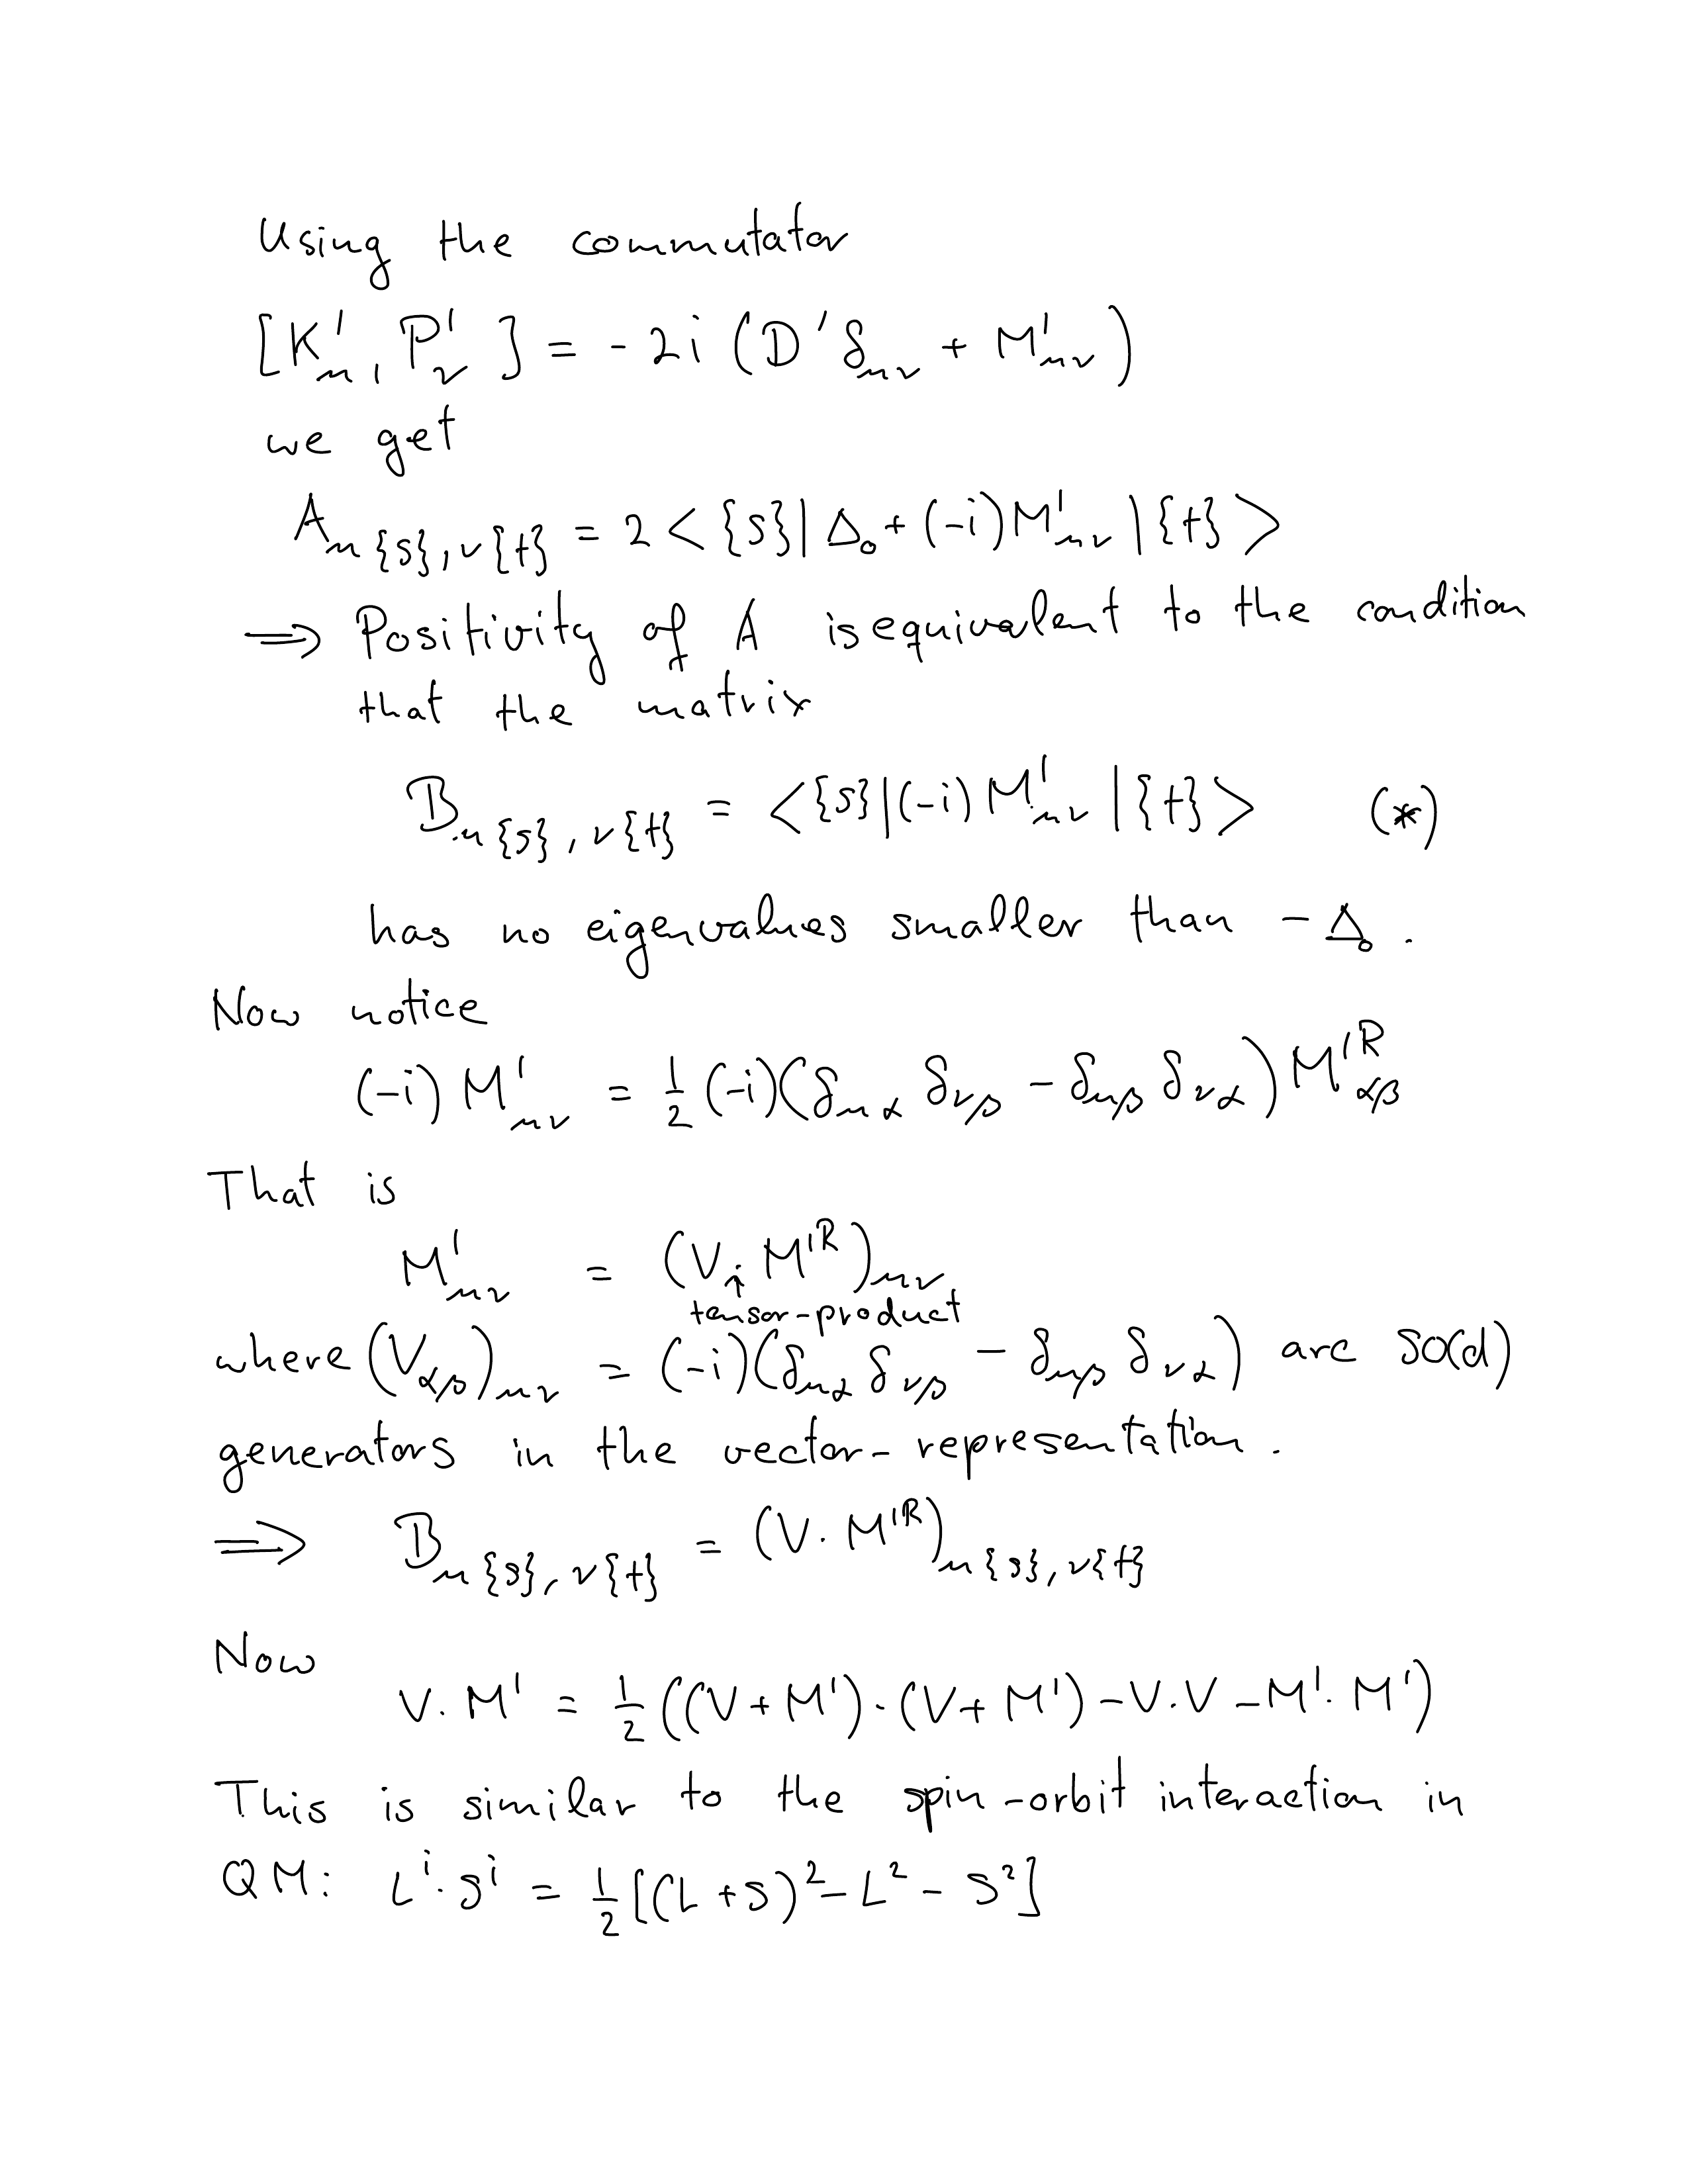 Using the commutator
[K'_μ, P'_ν] = -2i (D' δ_μν + M'_μν)
we get
A_μ{s},ν{t} = 2 <{s}| Δ₀ + (-i)M'_μν |{t}>
⟹ Positivity of A is equivalent to the condition
that the matrix
B_μ{s},ν{t} = <{s}|(-i) M'_μν |{t}> (*)
has no eigenvalues smaller than -Δ₀.
Now notice
(-i) M'_μν = 1/2 (-i)(δ_μα δ_νβ - δ_μβ δ_να) M'^R_αβ
That is
M'_μν = (V · M'^R)_μν
↑
tensor-product
where (V_αβ)_μν = (-i)(δ_μα δ_νβ - δ_μβ δ_να) are SO(d)
generators in the vector-representation.
⟹ B_μ{s},ν{t} = (V · M'^R)_μ{s},ν{t}
Now
V · M' = 1/2 ((V + M') · (V + M') - V · V - M' · M')
This is similar to the spin-orbit interaction in
QM: L^i · S^i = 1/2 [(L + S)² - L² - S²]